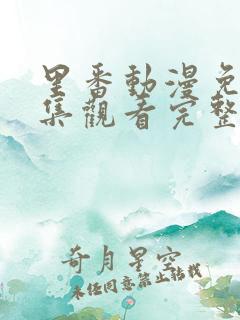 里番動漫免
集觀看完整
奇月星空
未经同意禁止转载